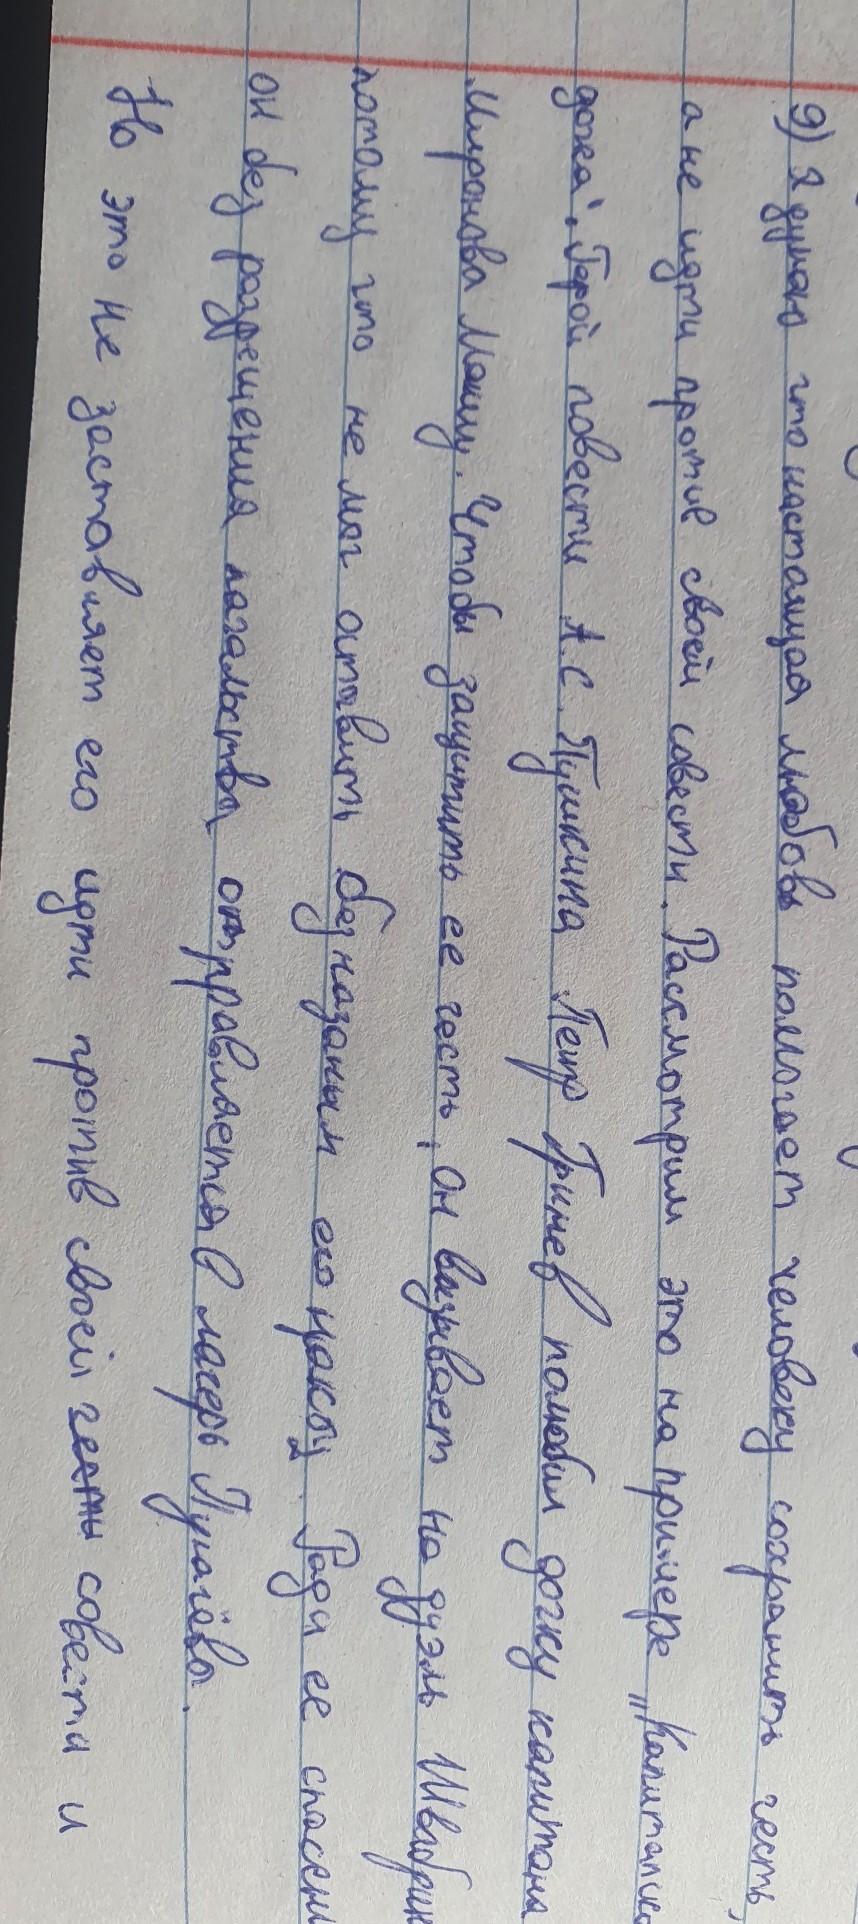 9) Я думаю что настоящая любовь помогает человеку сохранить честь,
а не идти против своей совести. Рассмотрим это на примере „Капитанск
дочка". Герой повести А.С. Пушкина Петр Гринев полюбил дочку капитана
Миронова Машу. Чтобы защитить ее честь, он вызывает на дуэль Швабрин
потому что не мог оставить безназаным его
Ради ее спасени
он без разрещения начальства отправляется в лагерь Пугачёва.
Но это не заставляет его идти против своей чести совести и